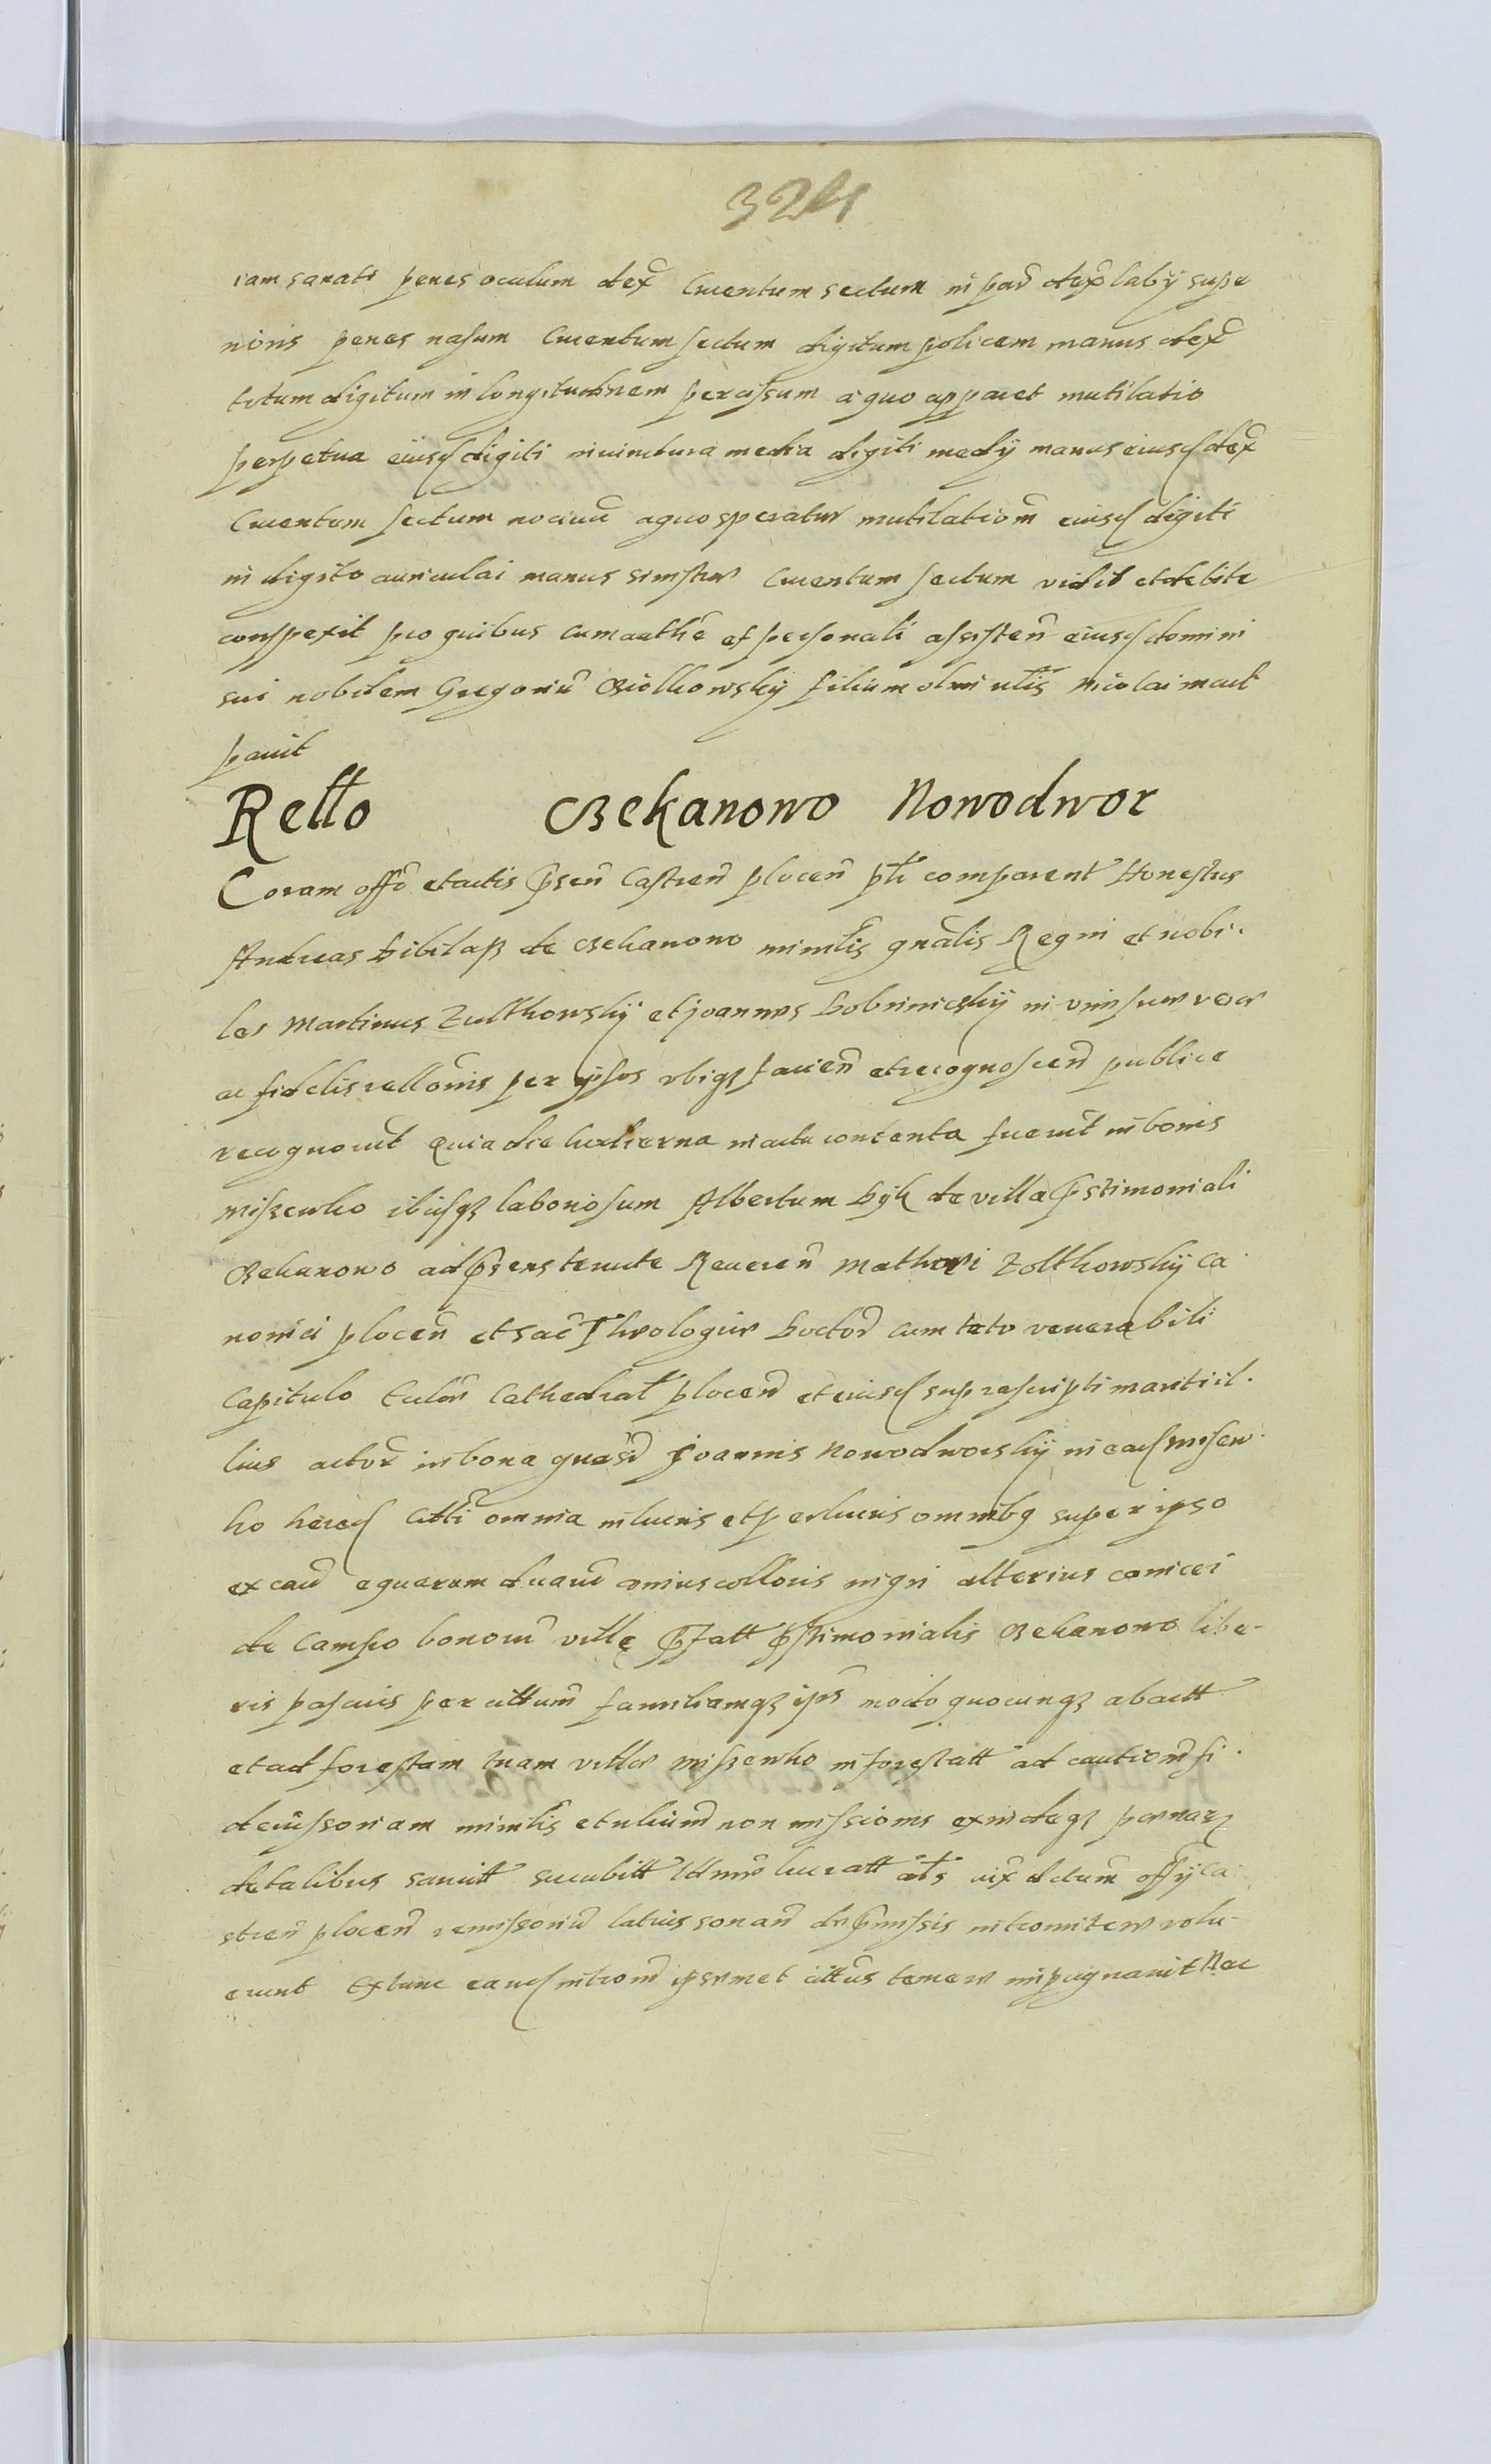 324
iam sanati penes oculum dex̃ Cruentum sectum in par̃ dex̃ labij supe
rioris penes nasum Cruentum sectum digitum policem manus dex̃
totum digitum in longitudinem percissum a quo apparet mutilatio
perpetua eiusd digiti in iunctura media digiti medij manus eiusd dex̃
Cruentum sectum nociuũ a quo speratur mutilatiom̃ eiusd digiti
in digito auriculai manus sinistrae Cruentum sectum vidit et debite
conspexit pro quibus cum auth̃e et personali assisteñ eiusd domini
sui nobilem Gregoriũ Biolkowsky filium olim nb̃lis Nicolai incul
pauit
Rellõ Bekanowo Nowodwor
Coram offõ et actis p̃señ Castreñ ploceñ pl̃r comparent Honestus
Andreas Bibilasz de Bekanowo minrl̃is gnãlis Regni et nobi-
les Martinus Zulkowskij et Joannes Dobrinieskij in vim suae verae
ac fidelis rellõnis per ipsos vbiqz facieñ et recognosceñ publice
recognouit Quia die hesterna in actu contenta fuerũt in bonis
Miszewko ibiqz laboriosum Albertum Byk de villa p̃stimoniali
Bekanowo ad p̃sens tenute Revereñ Mathaei Zolkowskij Ca
nonici ploceñ et sac̃ Theologiae Doctor̃ cum toto venerabili
Capitulo Eccl̃ae Cathedral ploceñ et eiusd suprascripti mariti il-
lius actor̃ in bona gnosi Joannis Nowodworskij in ead Misew-
ko hered citt̃i omnia in lucris et perlucris omnibq super ipso
ex cau͂ equarum duarũ vnius colloris nigri alterius canicei
de campo bonorũ villę p̃fatt p̃stimonialis Bekanowo libe-
ris pascuis per citt̃um familiamqz ips̃ modo quocunqz abactt
et ad forestam tuam villae Miszewko inforestatt ad cautiom̃ fi-
deiussoriam minrl̃is et nb̃liuм̃ non missionis exindeqz poenarz
de talibus sancitt sucubitt lucratt al̃s iux̃ d
streñ ploceñ remissoriũ latius sonañ de p̃missis intromittere volu-
erunt Extunc eand intromiss̃ ipsemet citt̃us temere impugnauit Nec